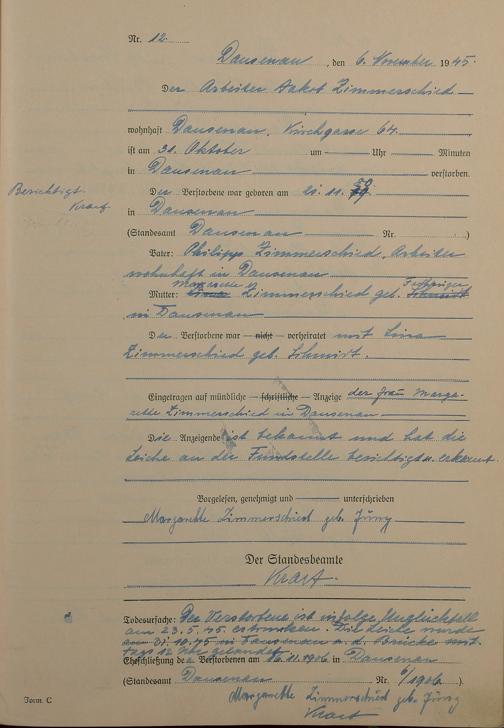 Nr. 12.
Dausenau, den 6. November 1945.
Der Arbeiter Jakob Zimmerschied
wohnhaft Dausenau, Kirchgasse 64.
ist am 31. Oktober um Uhr Minuten
in Dausenau verstorben.
Berichtigt
Der Verstorbene war geboren am
in Dausenau
(Standesamt Dausenau Nr. )
Vater: Philipp Zimmerschied, Arbeiter
wohnhaft in Dausenau
Mutter: Zimmerschied geb.
in Dausenau
Der Verstorbene war nicht verheiratet mit Lina
Zimmerschied geb. Schmidt.
Eingetragen auf mündliche schriftliche Anzeige der Frau Marga-
rethe Zimmerschied in Dausenau
Die Anzeigende ist bekannt und hat die
Leiche an der Fundstelle besichtigt u. erkannt.
Vorgelesen, genehmigt und unterschrieben
Margarethe Zimmerschied geb. Jüng
Der Standesbeamte
Todesursache: Der Verstorbene ist infolge Unglücksfall
am 23.5.45 ertrunken. Die Leiche wurde
am 31.10.45 in Dausenau a. d. Brücke mit-
tags 12 Uhr geländet.
Eheschließung des Verstorbenen am 16.11.1906 in Dausenau
(Standesamt Dausenau Nr. 6/1906)
Margarethe Zimmerschied geb. Jüng
Form. C